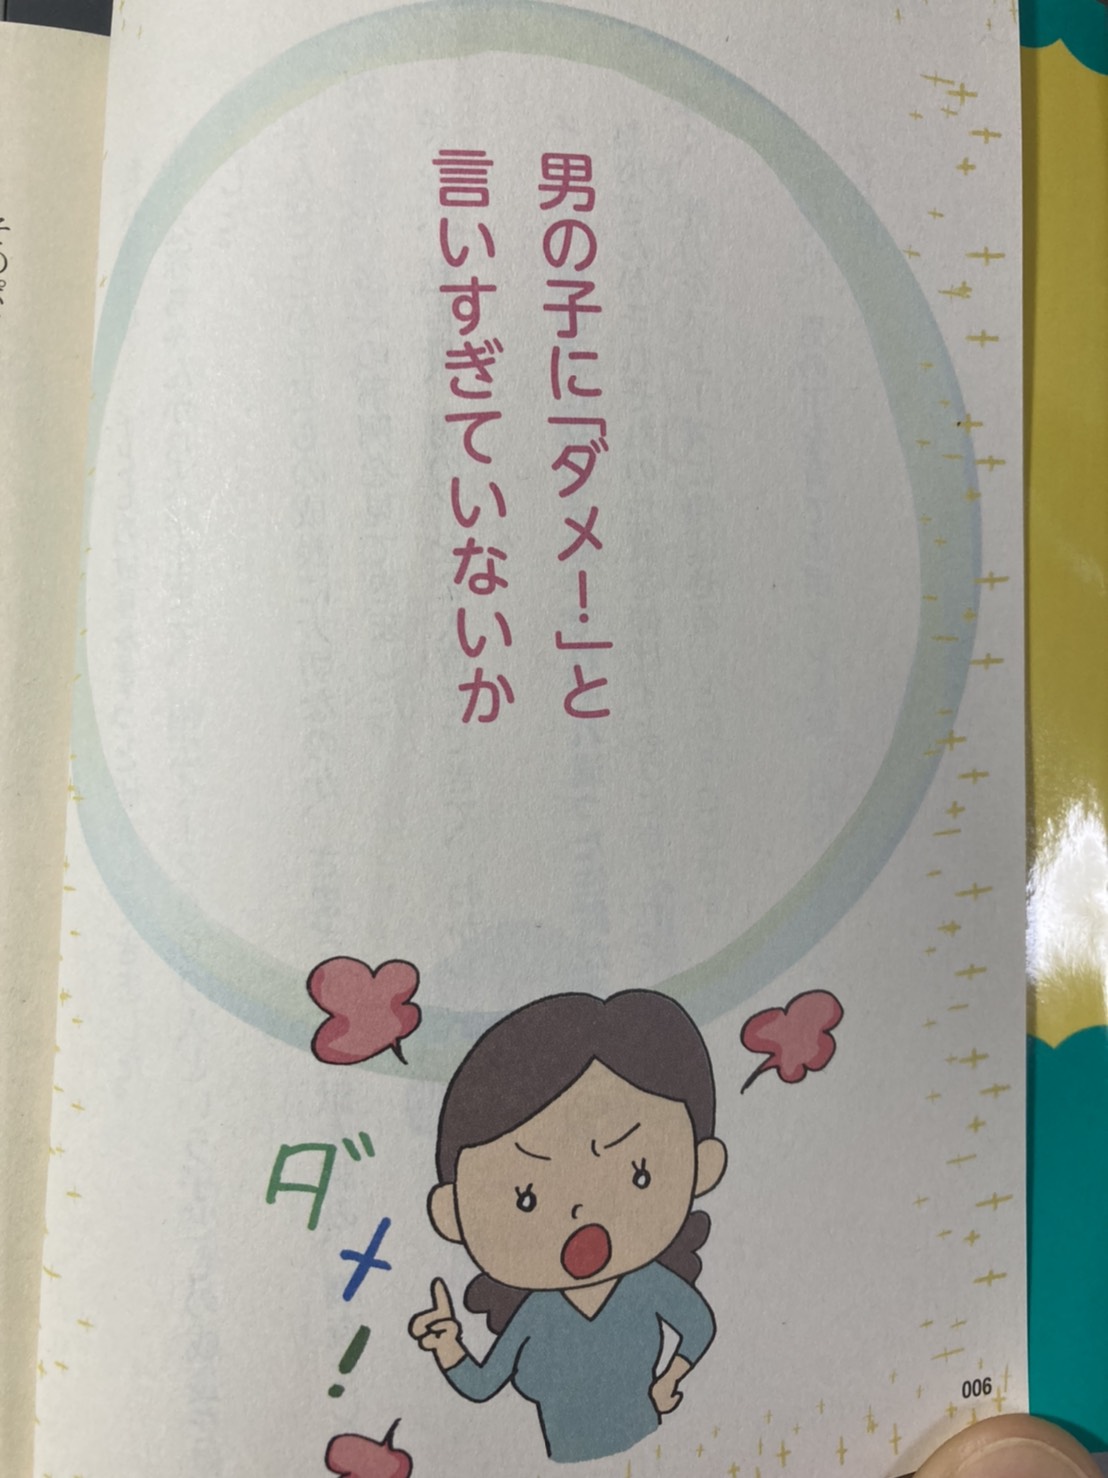 男の子に「ダメ!」と
言いすぎていないか
ダメ!
006